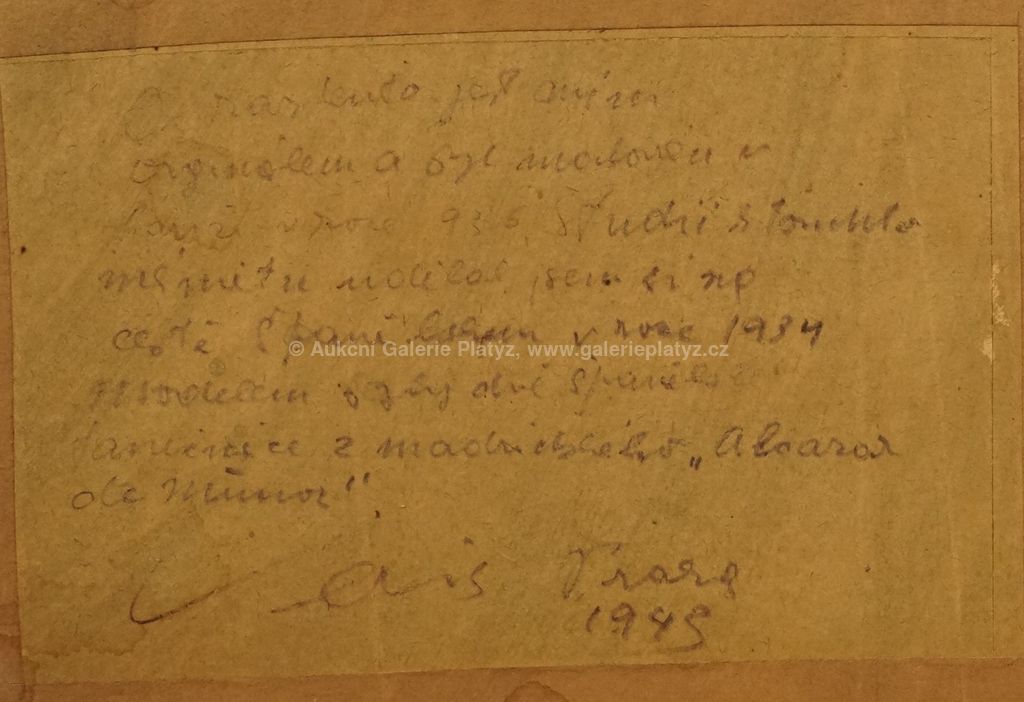 Obraz tento jest mým
originálem a byl malován v
Paříži v roce 936, Studii k tomuto
námětu udělal jsem si na
cestě Španělskem v roce 1934
Modelem byly dvě španělské
tanečnice z madridského „Alcazar
de Munoz“.
Praha
1945
© Aukcni Galerie Platyz, www.galerieplatyz.cz